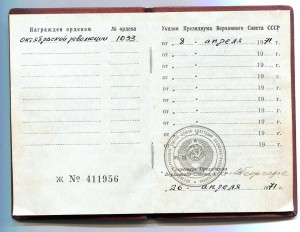 Награжден орденом № ордена
октябрьской революции 1093
Ж № 411956
Указом Президиума Верховного Совета СССР
от " 8 " апреля 1971 г.
от " " 19 г.
от " " 19 г.
от " " 19 г.
от " " 19 г.
от " " 19 г.
от " " 19 г.
от " " 19 г.
Секретарь Президиума
Верховного Совета СССР
26 апреля 1971 г.